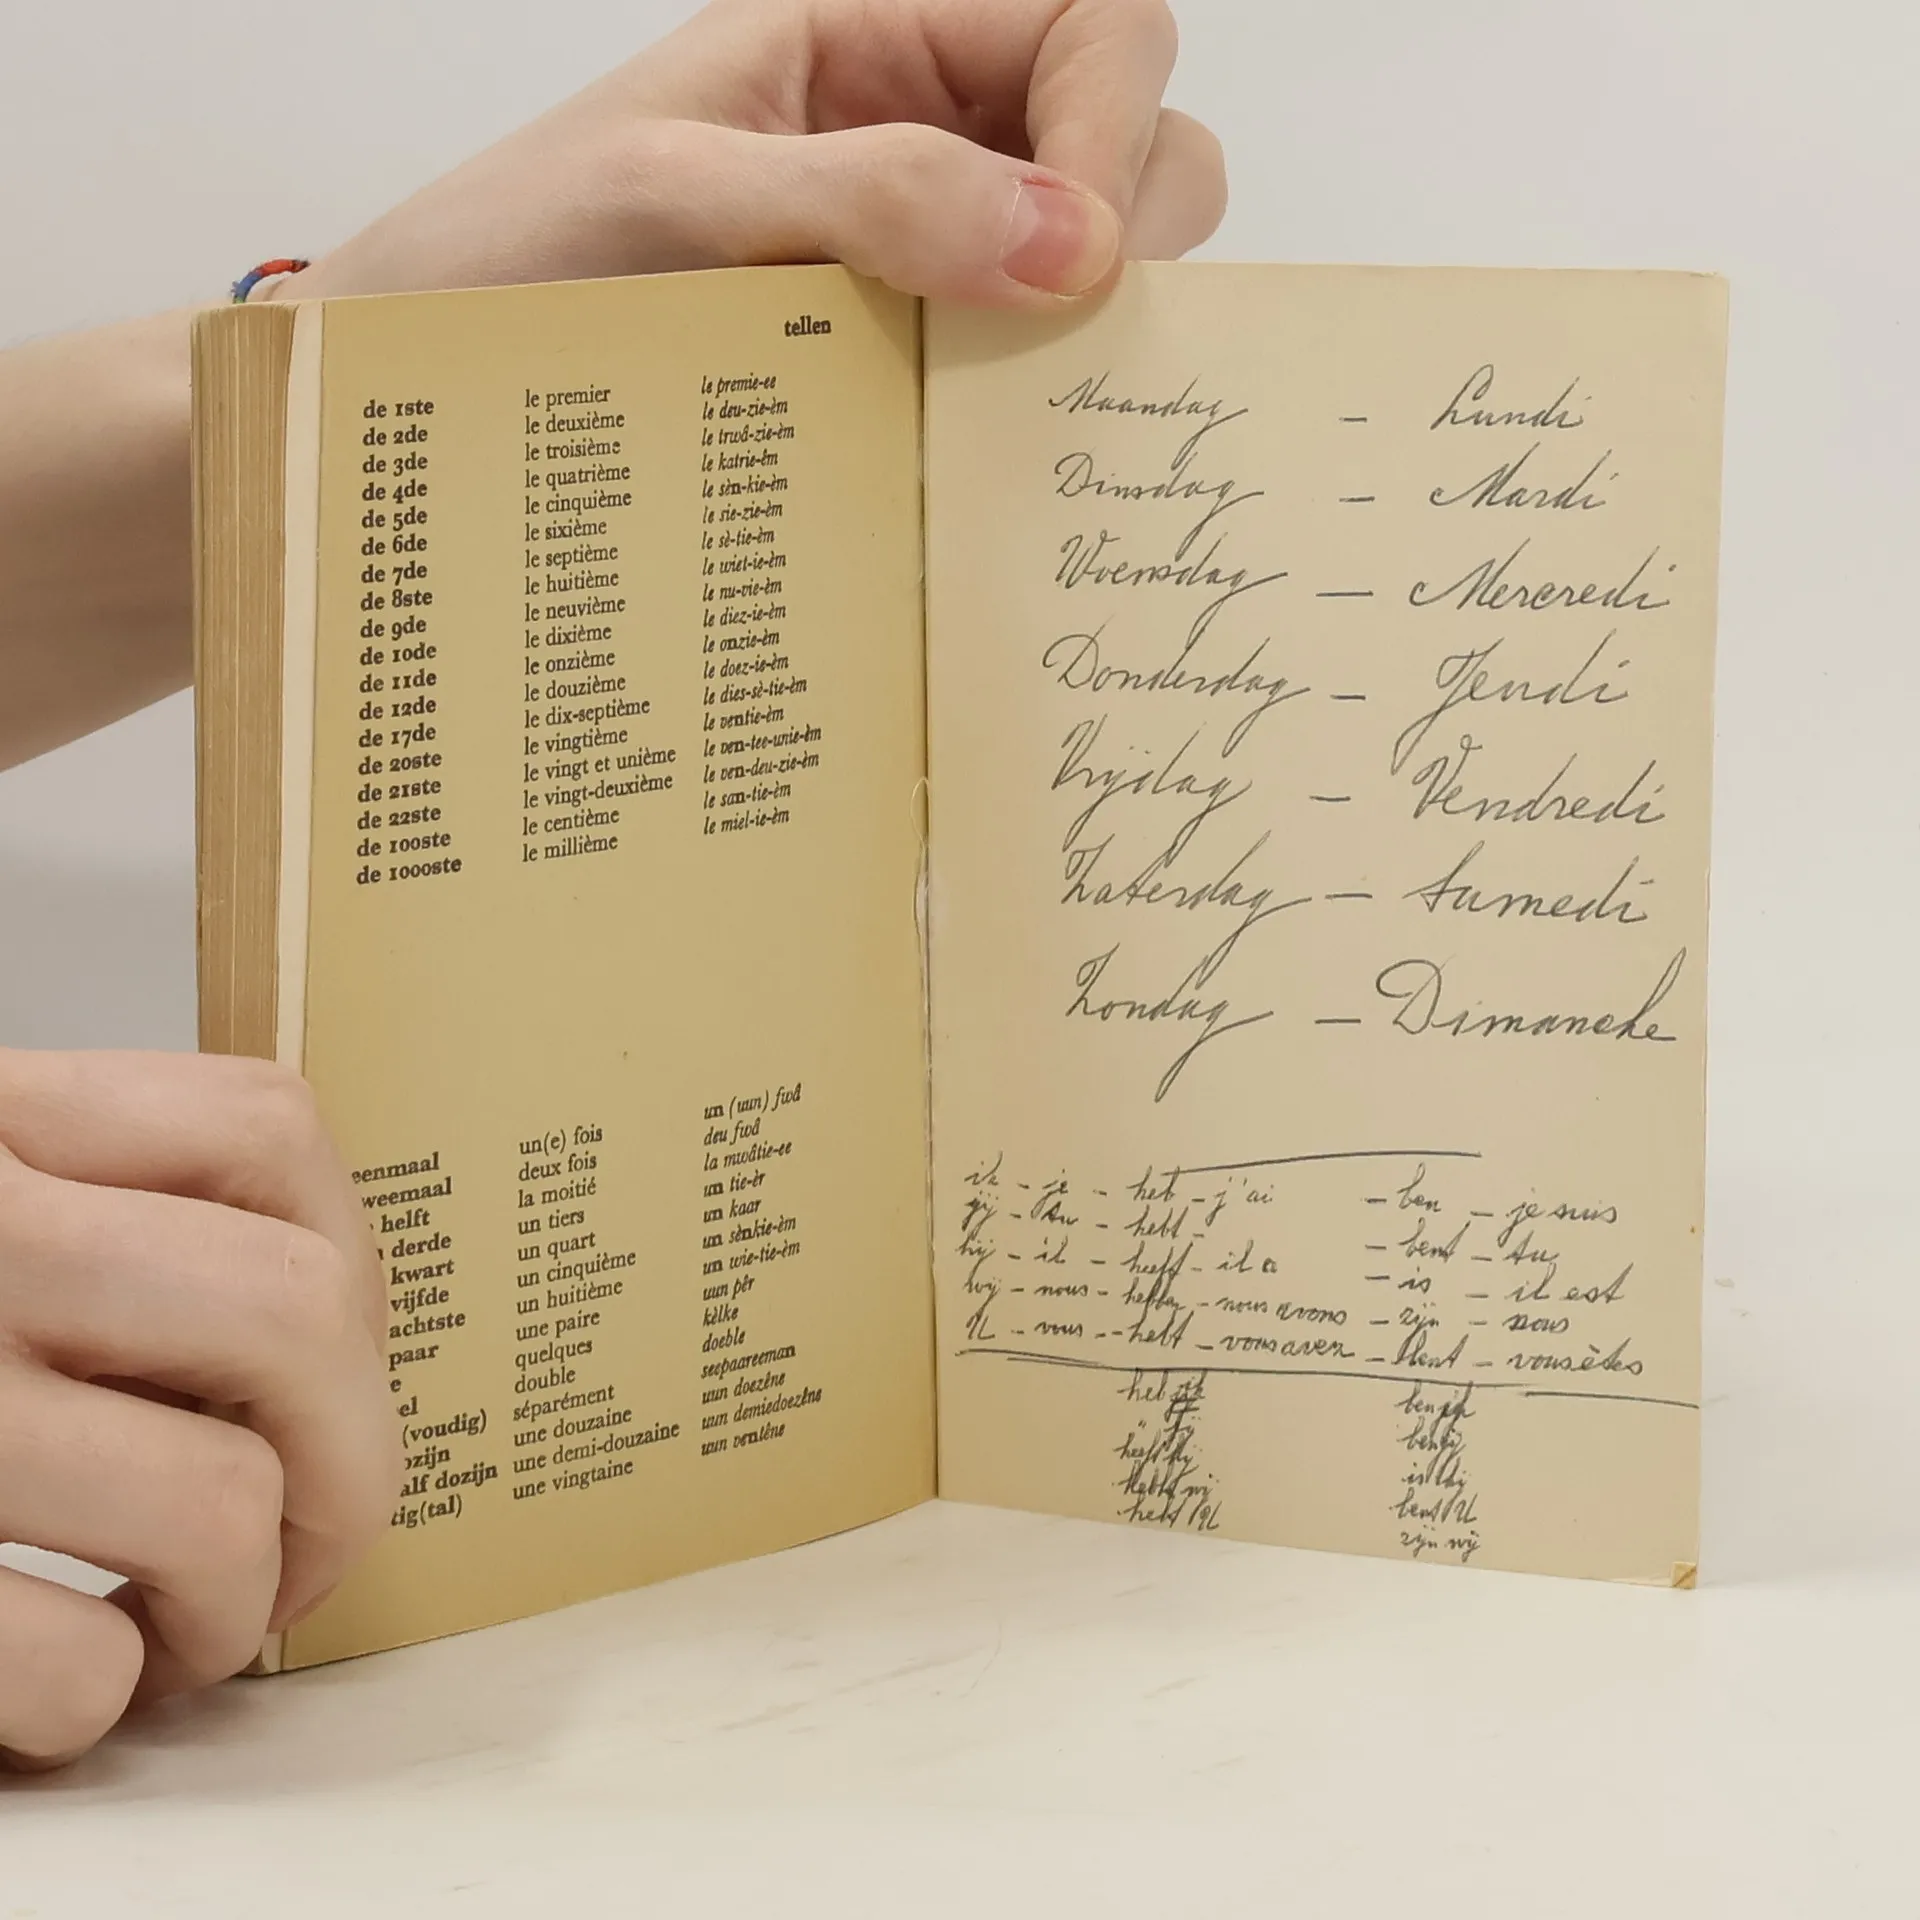 tellen
de 1ste le premier le premie-ee
de 2de le deuxième le deu-zie-èm
de 3de le troisième le trwâ-zie-èm
de 4de le quatrième le katrie-êm
de 5de le cinquième le sèn-kie-èm
de 6de le sixième le sie-zie-èm
de 7de le septième le sè-tie-èm
de 8ste le huitième le wiet-ie-èm
de 9de le neuvième le nu-vie-èm
de 10de le dixième le diez-ie-èm
de 11de le onzième le onzie-èm
de 12de le douzième le doez-ie-èm
de 17de le dix-septième le dies-sè-tie-èm
de 20ste le vingtième le ventie-èm
de 21ste le vingt et unième le ven-tee-unie-èm
de 22ste le vingt-deuxième le ven-deu-zie-èm
de 100ste le centième le san-tie-èm
de 1000ste le millième le miel-ie-èm
eenmaal un(e) fois un (uun) fwâ
weemaal deux fois deu fwâ
helft la moitié la mwâtie-ee
derde un tiers un tie-èr
kwart un quart un kaar
vijfde un cinquième un sènkie-èm
achtste un huitième un wie-tie-èm
paar une paire uun pêr
e quelques kèlke
el double doeble
(voudig) séparément seepaareeman
ozijn une douzaine uun doezêne
alf dozijn une demi-douzaine uun demiedoezêne
tig(tal) une vingtaine uun ventêne
Maandag – Lundi
Dinsdag – Mardi
Woensdag – Mercredi
Donderdag – Jeudi
Vrijdag – Vendredi
Zaterdag – Samedi
Zondag – Dimanche
ik – je – heb – j'ai – ben – je suis
gij – tu – hebt – – bent – tu
hij – il – heeft – il a – is – il est
wij – nous – hebben – nous avons – zijn – nous
U – vous – hebt – vous avez – bent – vous êtes
heb ik ben ik
heeft hij is hij
hebt U bent U
zijn wij